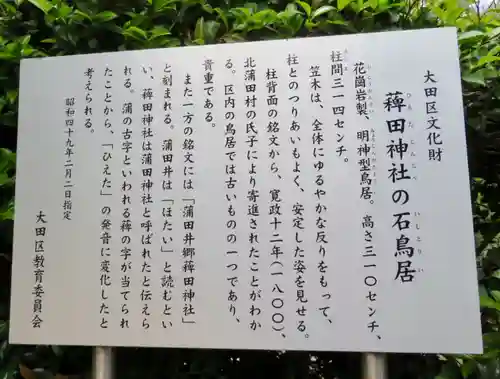 大田区文化財
薭田神社の石鳥居
花崗岩製、明神型鳥居。高さ三一〇センチ、
柱間三一四センチ。
笠木は、全体にゆるやかな反りをもって、
柱とのつりあいもよく、安定した姿を見せる。
柱背面の銘文から、寛政十二年(一八〇〇)、
北蒲田村の氏子により寄進されたことがわか
る。区内の鳥居では古いものの一つであり、
貴重である。
また一方の銘文には「蒲田井郷薭田神社」
と刻まれる。蒲田井は「ほたい」と読むとい
い、薭田神社は蒲田神社と呼ばれたと伝えら
れる。蒲の古字といわれる薭の字が当てられ
たことから、「ひえた」の発音に変化したと
考えられる。
昭和四十九年二月二日指定
大田区教育委員会